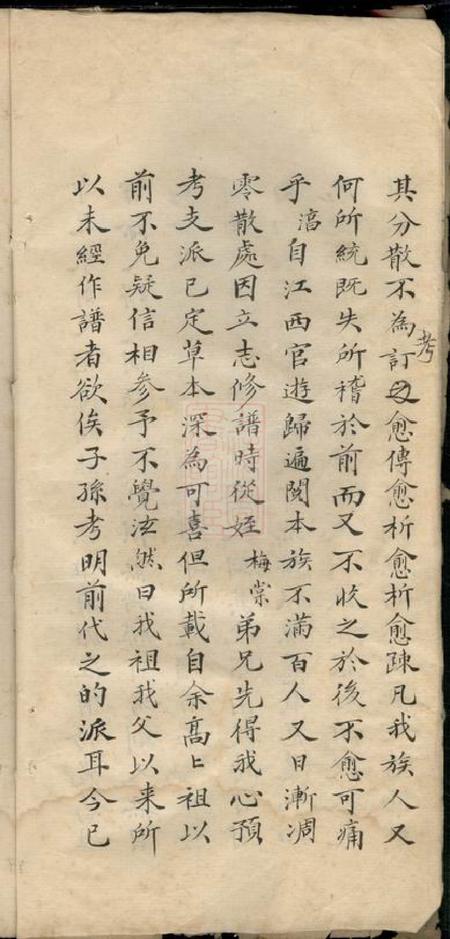 其分散不為訂考愈傳愈析愈析愈疎凡我族人又
何所統既失所稽於前而又不收之於後不愈可痛
乎滈自江西官遊歸遍閱本族不滿百人又日漸凋
零散處因立志修譜時從姪梅棠弟兄先得我心預
考支派已定草本深為可喜但所載自余高上祖以
前不免疑信相參予不覺泫然曰我祖我父以来所
以未經作譜者欲俟子孫考明前代之的派耳今已